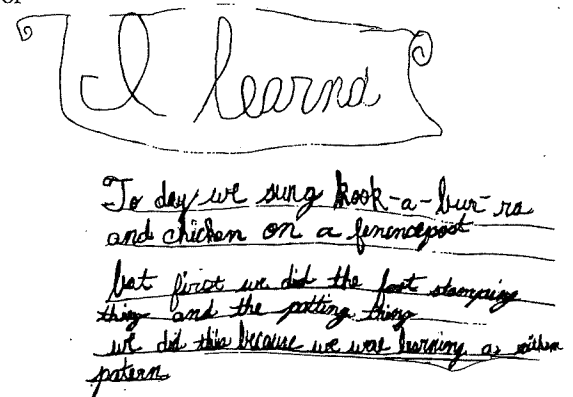 or
I learnd
To day we sung kook-a-bur-ra
and chicken on a fenencepost
but first we did the foot stomping
thing and the patting thing
we did this because we were learning a rithem
patern